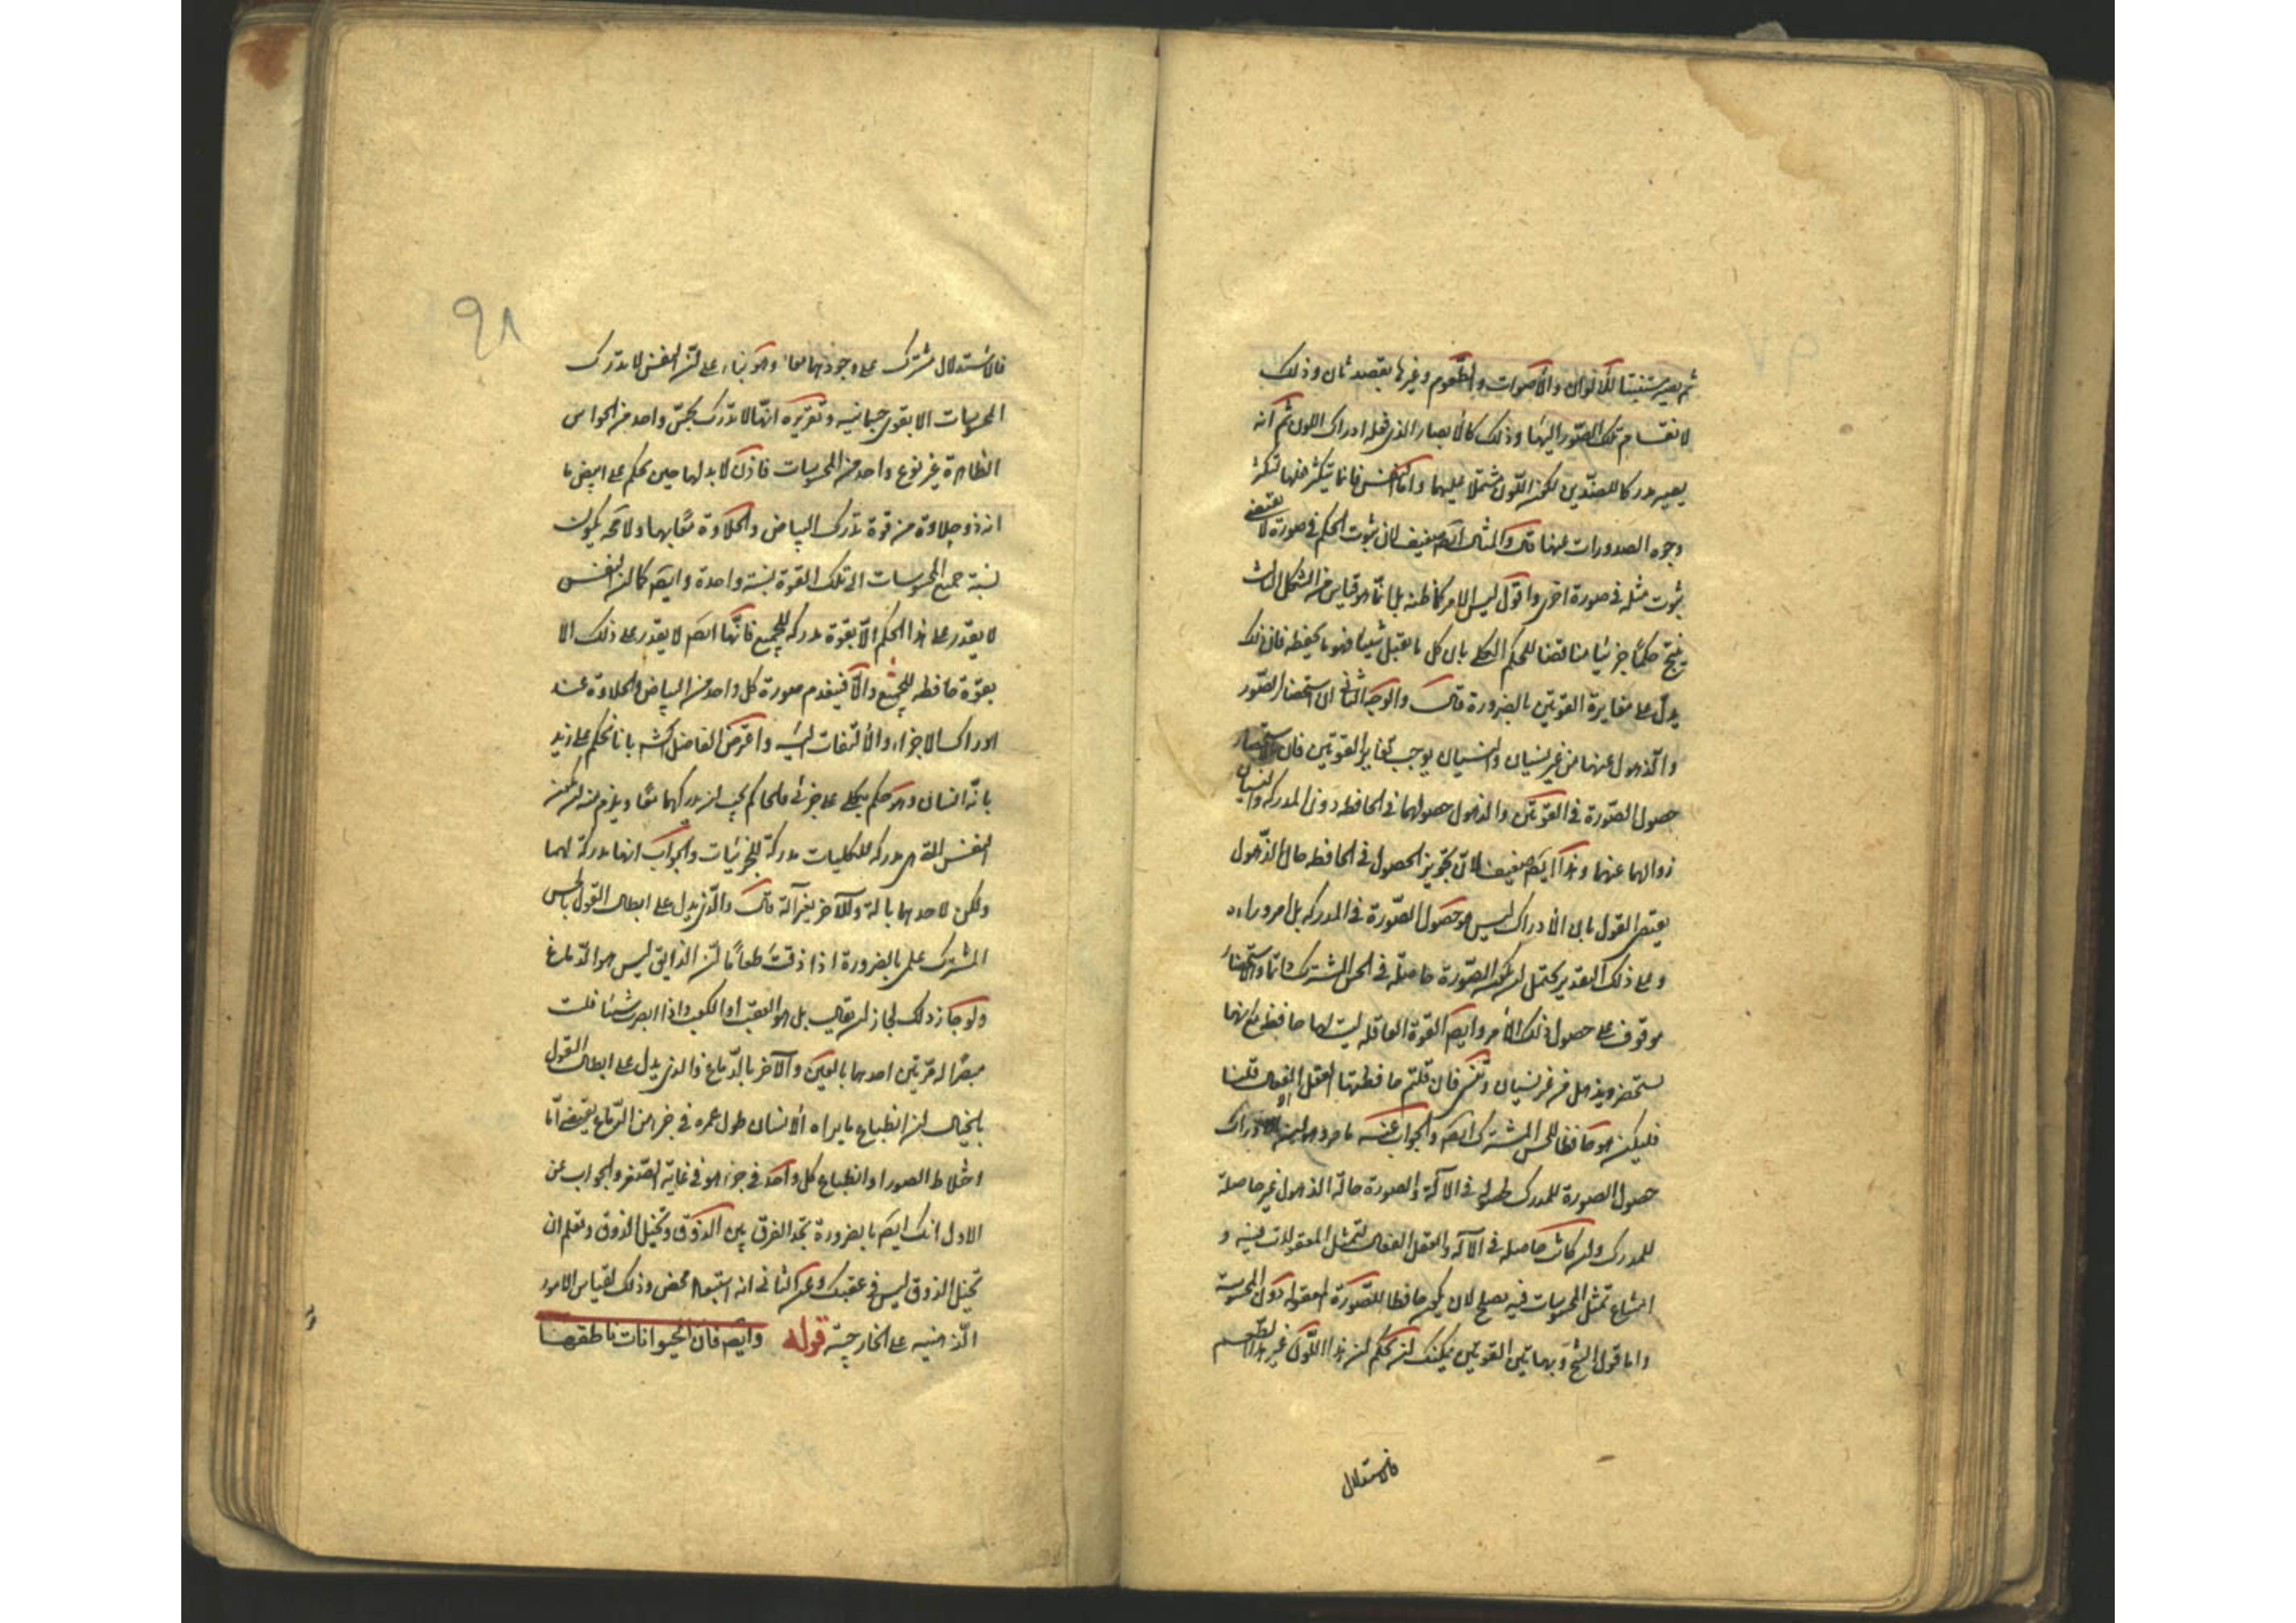 ثم يصير مستثبتا للالوان والاصوات والطعوم وغيرها بقصد ثان وذلك
لانقسام تلك الصور اليها وذلك كالابصار الذى فعله ادراك اللون ثم انه
يصير مدركا للضدين لكون اللون مشتملا عليهما واما النفس فانما يتكثر فعلها تكثر
وجوه الصدورات عنها قال والمثال ايضا ضعيف لان ثبوت الحكم فى صورة لا يقتضى
ثبوت مثله فى صورة اخرى واقول ليس الامر كما ظنه بل انما هو قياس من الشكل الثالث
ينتج حكما جزئيا مناقضا للحكم الكلى بان كل ما يقبل شيئا فهو ما يحفظه فان ذلك
يدل على مغايرة القوتين بالضرورة قال والوجه الثانى ان استحضار الصور
والذهول عنها من غير نسيان والنسيان يوجب تغاير القوتين فان الاستحضار
حصول الصورة فى القوتين والذهول حصولها فى الحافظة دون المدركة والنسيان
زوالها عنهما وهذا ايضا ضعيف لان تجويز الحصول فى الحافظة حال الذهول
يقتضى القول بان الادراك ليس هو حصول الصورة فى المدركة بل امر وراءه
وعلى ذلك التقدير يحتمل ان يكون الصورة حاصلة فى الحس المشترك دائما والاستحضار
موقوف على حصول ذلك الامر وايضا القوة العاقلة ليست لها حافظة مع انها
تستحضر ويذهل من غير نسيان وتنسى فان قلتم حافظتها العقل الفعال قلنا
فليكن هو حافظا للحس المشترك ايضا والجواب عنه ما مر وهو ان الادراك
حصول الصورة للمدرك لحصولها فى الآلة والصورة حالة الذهول غير حاصلة
للمدرك وان كانت حاصلة فى الآلة والعقل الفعال لتمثل المعقولات فيه و
امتناع تمثل المحسوسات فيه يصلح لان يكون حافظا للصورة المعقولة دون المحسوسة
واما قول الشيخ وبهاتين القوتين يمكنك ان تحكم ان هذا اللون غير هذا الطعم
فالاستدلال
٩٨
فالاستدلال مشترك على وجودهما معا وهو بناء على ان النفس لا تدرك
المحسوسات الا بقوى جسمانية وتقريره انها لا تدرك بحس واحد من الحواس
الظاهرة غير نوع واحد من المحسوسات فاذن لا بد لها حين تحكم على ابيض ما
انه ذو حلاوة من قوة تدرك البياض والحلاوة معا بها ولا محة يكون
نسبة جميع المحسوسات الى تلك القوة نسبة واحدة وايضا كما ان النفس
لا يقدر على هذا الحكم الا بقوة مدركة للجميع فانها ايضا لا يقدر على ذلك الا
بقوة حافظة للجميع والا فينعدم صورة كل واحد من البياض والحلاوة عند
ادراك الاخر والالتفات اليه واعترض الفاضل الشه بانا نحكم على زيد
بانه انسان وهو حكم بكلى على جزئى فالحاكم يجب ان يدركهما معا ويلزم منه ان يكون
النفس التى هى مدركة للكليات مدركة للجزئيات والجواب انها مدركة لهما
ولكن لاحدهما بآلة وللآخر بغير آلة قال والذى يدل على ابطال القول بالحس
المشترك علمى بالضرورة اذا ذقت طعاما ان الذايق ليس هو الدماغ
ولو جاز ذلك لجاز ان يقال بل هو العقب او الكعب واذا ابصرت شيئا فلست
مبصرا له مرتين احدهما بالعين والآخر بالدماغ والذى يدل على ابطال القول
بالخيال ان انطباع ما يراه الانسان طول عمره فى جزء من الدماغ يقتضى اما
اختلاط الصور او انطباع كل واحد فى جزء هو فى غاية الصغر والجواب عن
الاول انك ايضا بالضرورة تجد الفرق بين الذوق وتخيل الذوق وتعلم ان
تخيل الذوق ليس فى عقبك وعن الثانى انه استبعاد محض وذلك لقياس الامور
الذهنية على الخارجية قوله وايضا فان الحيوانات ناطقها